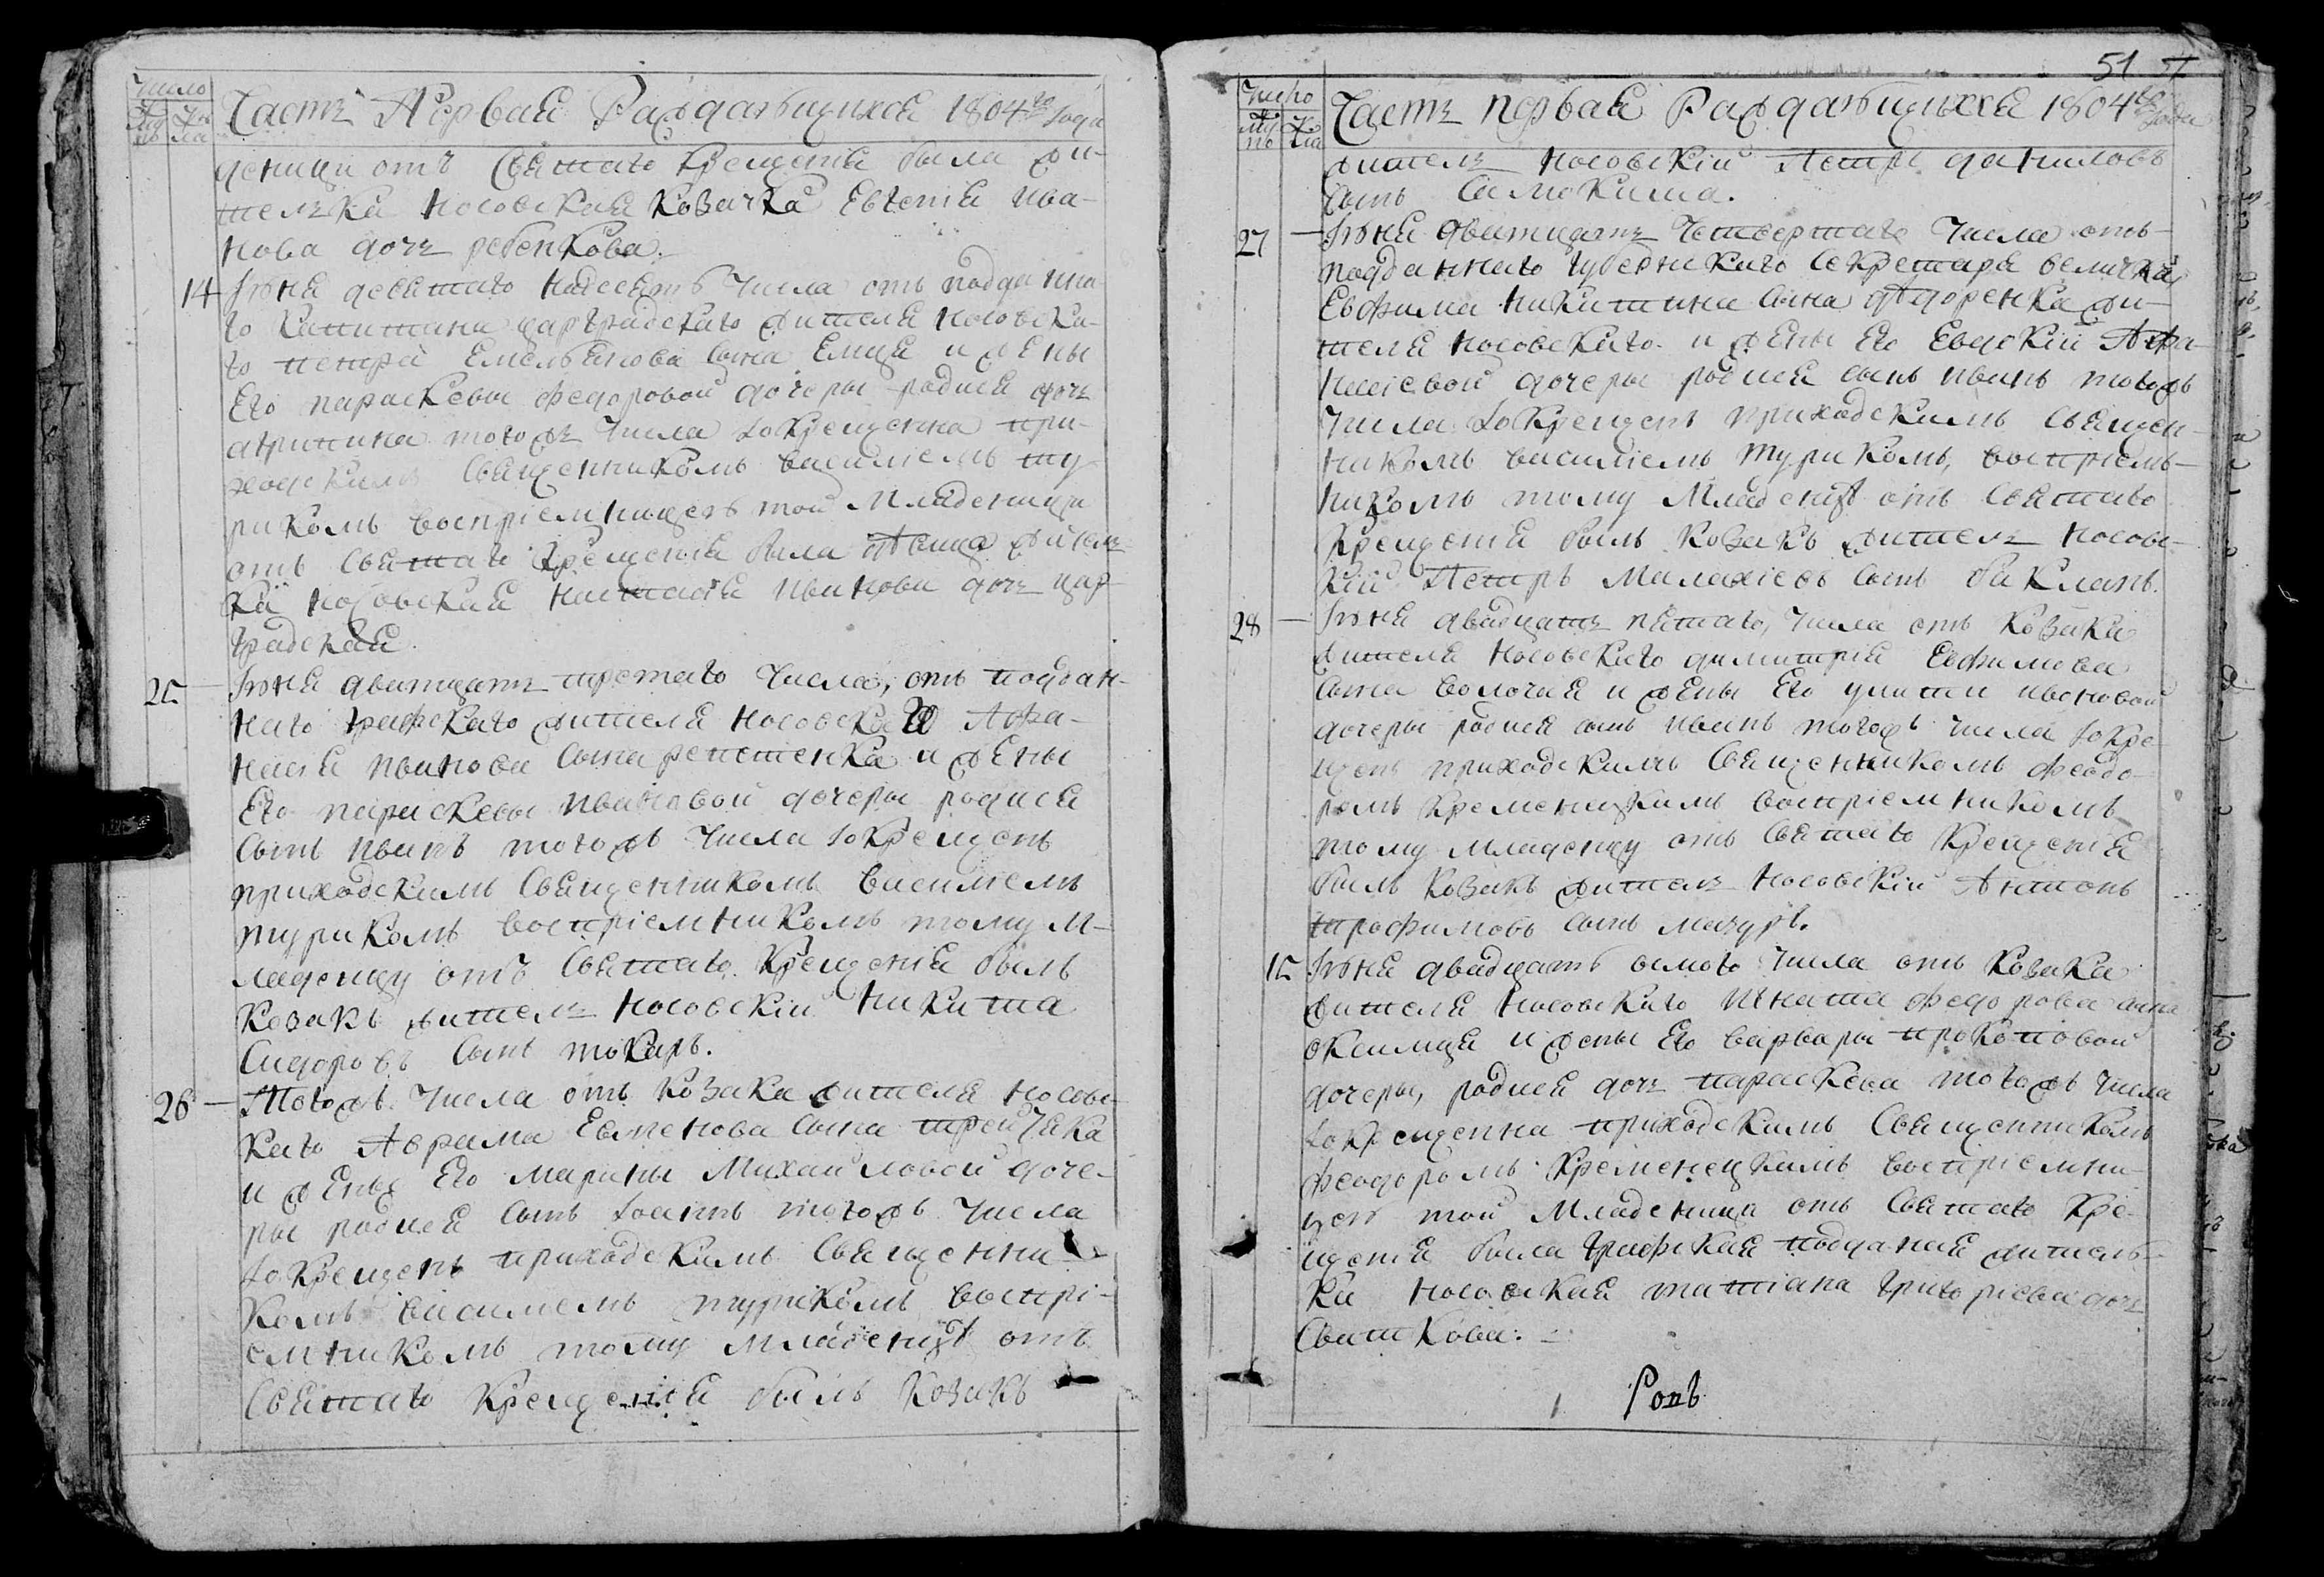 Число
Му Же
жъ ла
Часть Первая Раждающихся 1804го Года
деници отъ Святаго Крещенія была жи-
телька Носовская козачка Евгенія Ива-
нова дочь ребенкова.
14 Іюня девятаго надесять Числа отъ подданна
го Капитана Царградскаго жителя Носовска-
го Петра Емельянова сына Емця и жены
Его параскевы Федоровой дочеры родися дочь
акрипина тогожъ Числа Ѡкрещенна при-
ходскимъ Священникомъ Василіемъ Ту-
рикомъ воспріемницею той Младеници
отъ Святаго Крещенія была жител
ка Носовская Настасія Иванова дочь цар-
градская.
25 Іюня дватцать третаго Числа, отъ поддан-
наго Графскаго жителя Носовскаго Афа-
насія Иванова сына репетенка и жены
Его параскевы Ивановой дочеры родися
сынъ Иванъ тогожъ Числа Ѡкрещенъ
приходскимъ Священникомъ Василіемъ
Туrикомъ воспріемникомъ тому М-
ладенцу отъ Святаго Крещенія былъ
Козакъ житель Носовскій Никита
Сидоровъ сынъ токарь.
26 Тогожъ Числа отъ козака жителя Носовс-
каго Аврама Евменова сына
и жены Его Марины Михайловой доче-
ры родися сынъ Іоаннъ тогожъ Числа
Ѡкрещенъ приходскимъ Священни-
комъ Василіемъ Туrикомъ воспрі-
емникомъ тому младенцу отъ
Святаго Крещенія былъ Козакъ
51
Число
Му Же
по ла
Часть первая Раждающихся 1804го Года
житель Носовскій Петръ даниловъ
сынъ Самокиша.
27 Іюня дватцать Четвертаго Числа отъ
подданнаго губернскаго Секретаря величка
Евфима Никитина сына Федоренка жи-
теля Носовскаго и жены Его Евдокіи Афа-
насіевой дочеры родися сынъ Иванъ тогожъ
Числа Ѡкрещенъ приходскимъ Священ-
никомъ Василіемъ Туrикомъ, воспріем-
никомъ тому Младенцу отъ Святаго
Крещенія былъ Козакъ житель Носовс-
кій Петръ Малахіевъ сынъ бакланъ.
28 Іюня двадцать пятаго, Числа отъ Козака
жителя Носовскаго димитрія Евфимова
сына волочая и жены Его улити ивановой
дочеры родися сынъ Иванъ тогожъ числа Ѡкре-
щенъ приходскимъ Священникомъ Феодо-
ромъ Кременецкимъ воспріемникомъ
тому младенцу отъ Святаго Крещенія
былъ козакъ житель Носовскій Антонъ
трофимовъ сынъ мазуръ.
15 Іюня двадцать осмого Числа отъ Козака
жителя Носовскаго Игната Федорова сына
и жены Его варвары прокоповой
дочеры, родися дочь параскева тогожъ Числа
Ѡкрещенна приходскимъ Священникомъ
Феодоромъ Кременецкимъ воспріемни-
цею той Младеници отъ Святаго Кре-
щенія была Графская подданая житель-
ка Носовская татіана Григоріева дочь
Свиткова.